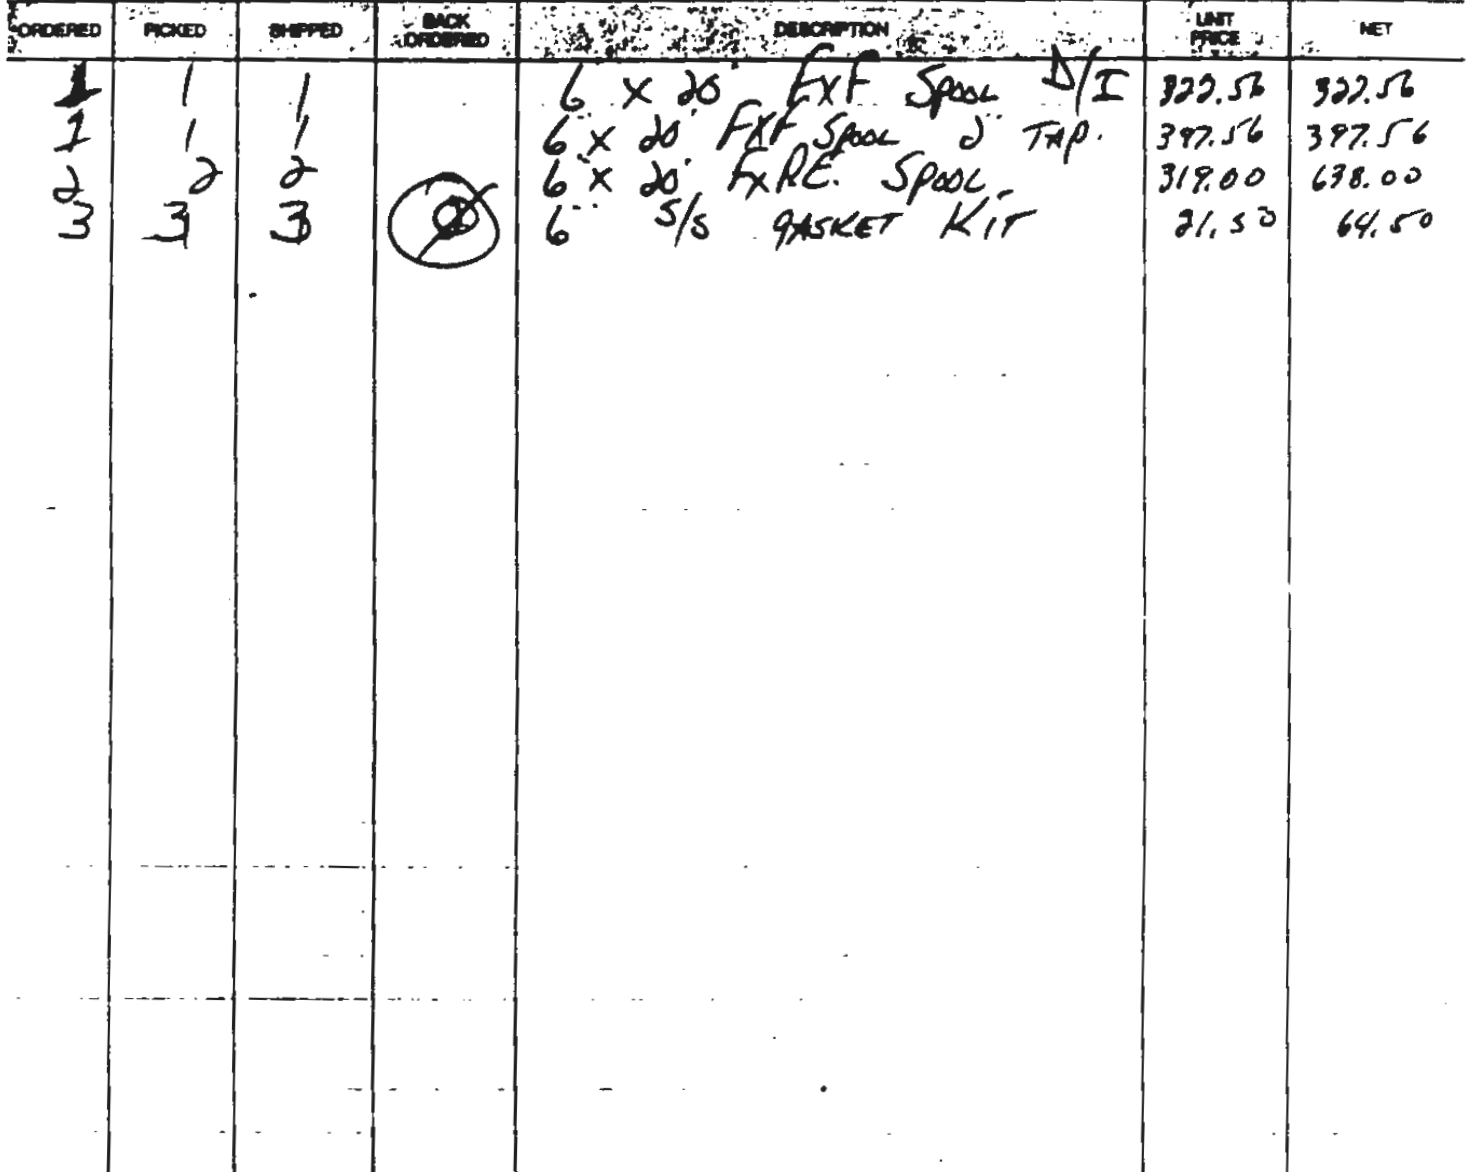 ORDERED PICKED SHIPPED BACK ORDERED DESCRIPTION UNIT PRICE NET
1 1 1 6" x 20' FxF Spool D/I 322.56 322.56
1 1 1 6" x 20' FxF Spool 2" TAP. 397.56 397.56
2 2 2 6" x 20' FxP.E. Spool 319.00 638.00
3 3 3 6" S/S GASKET KIT 21.50 64.50